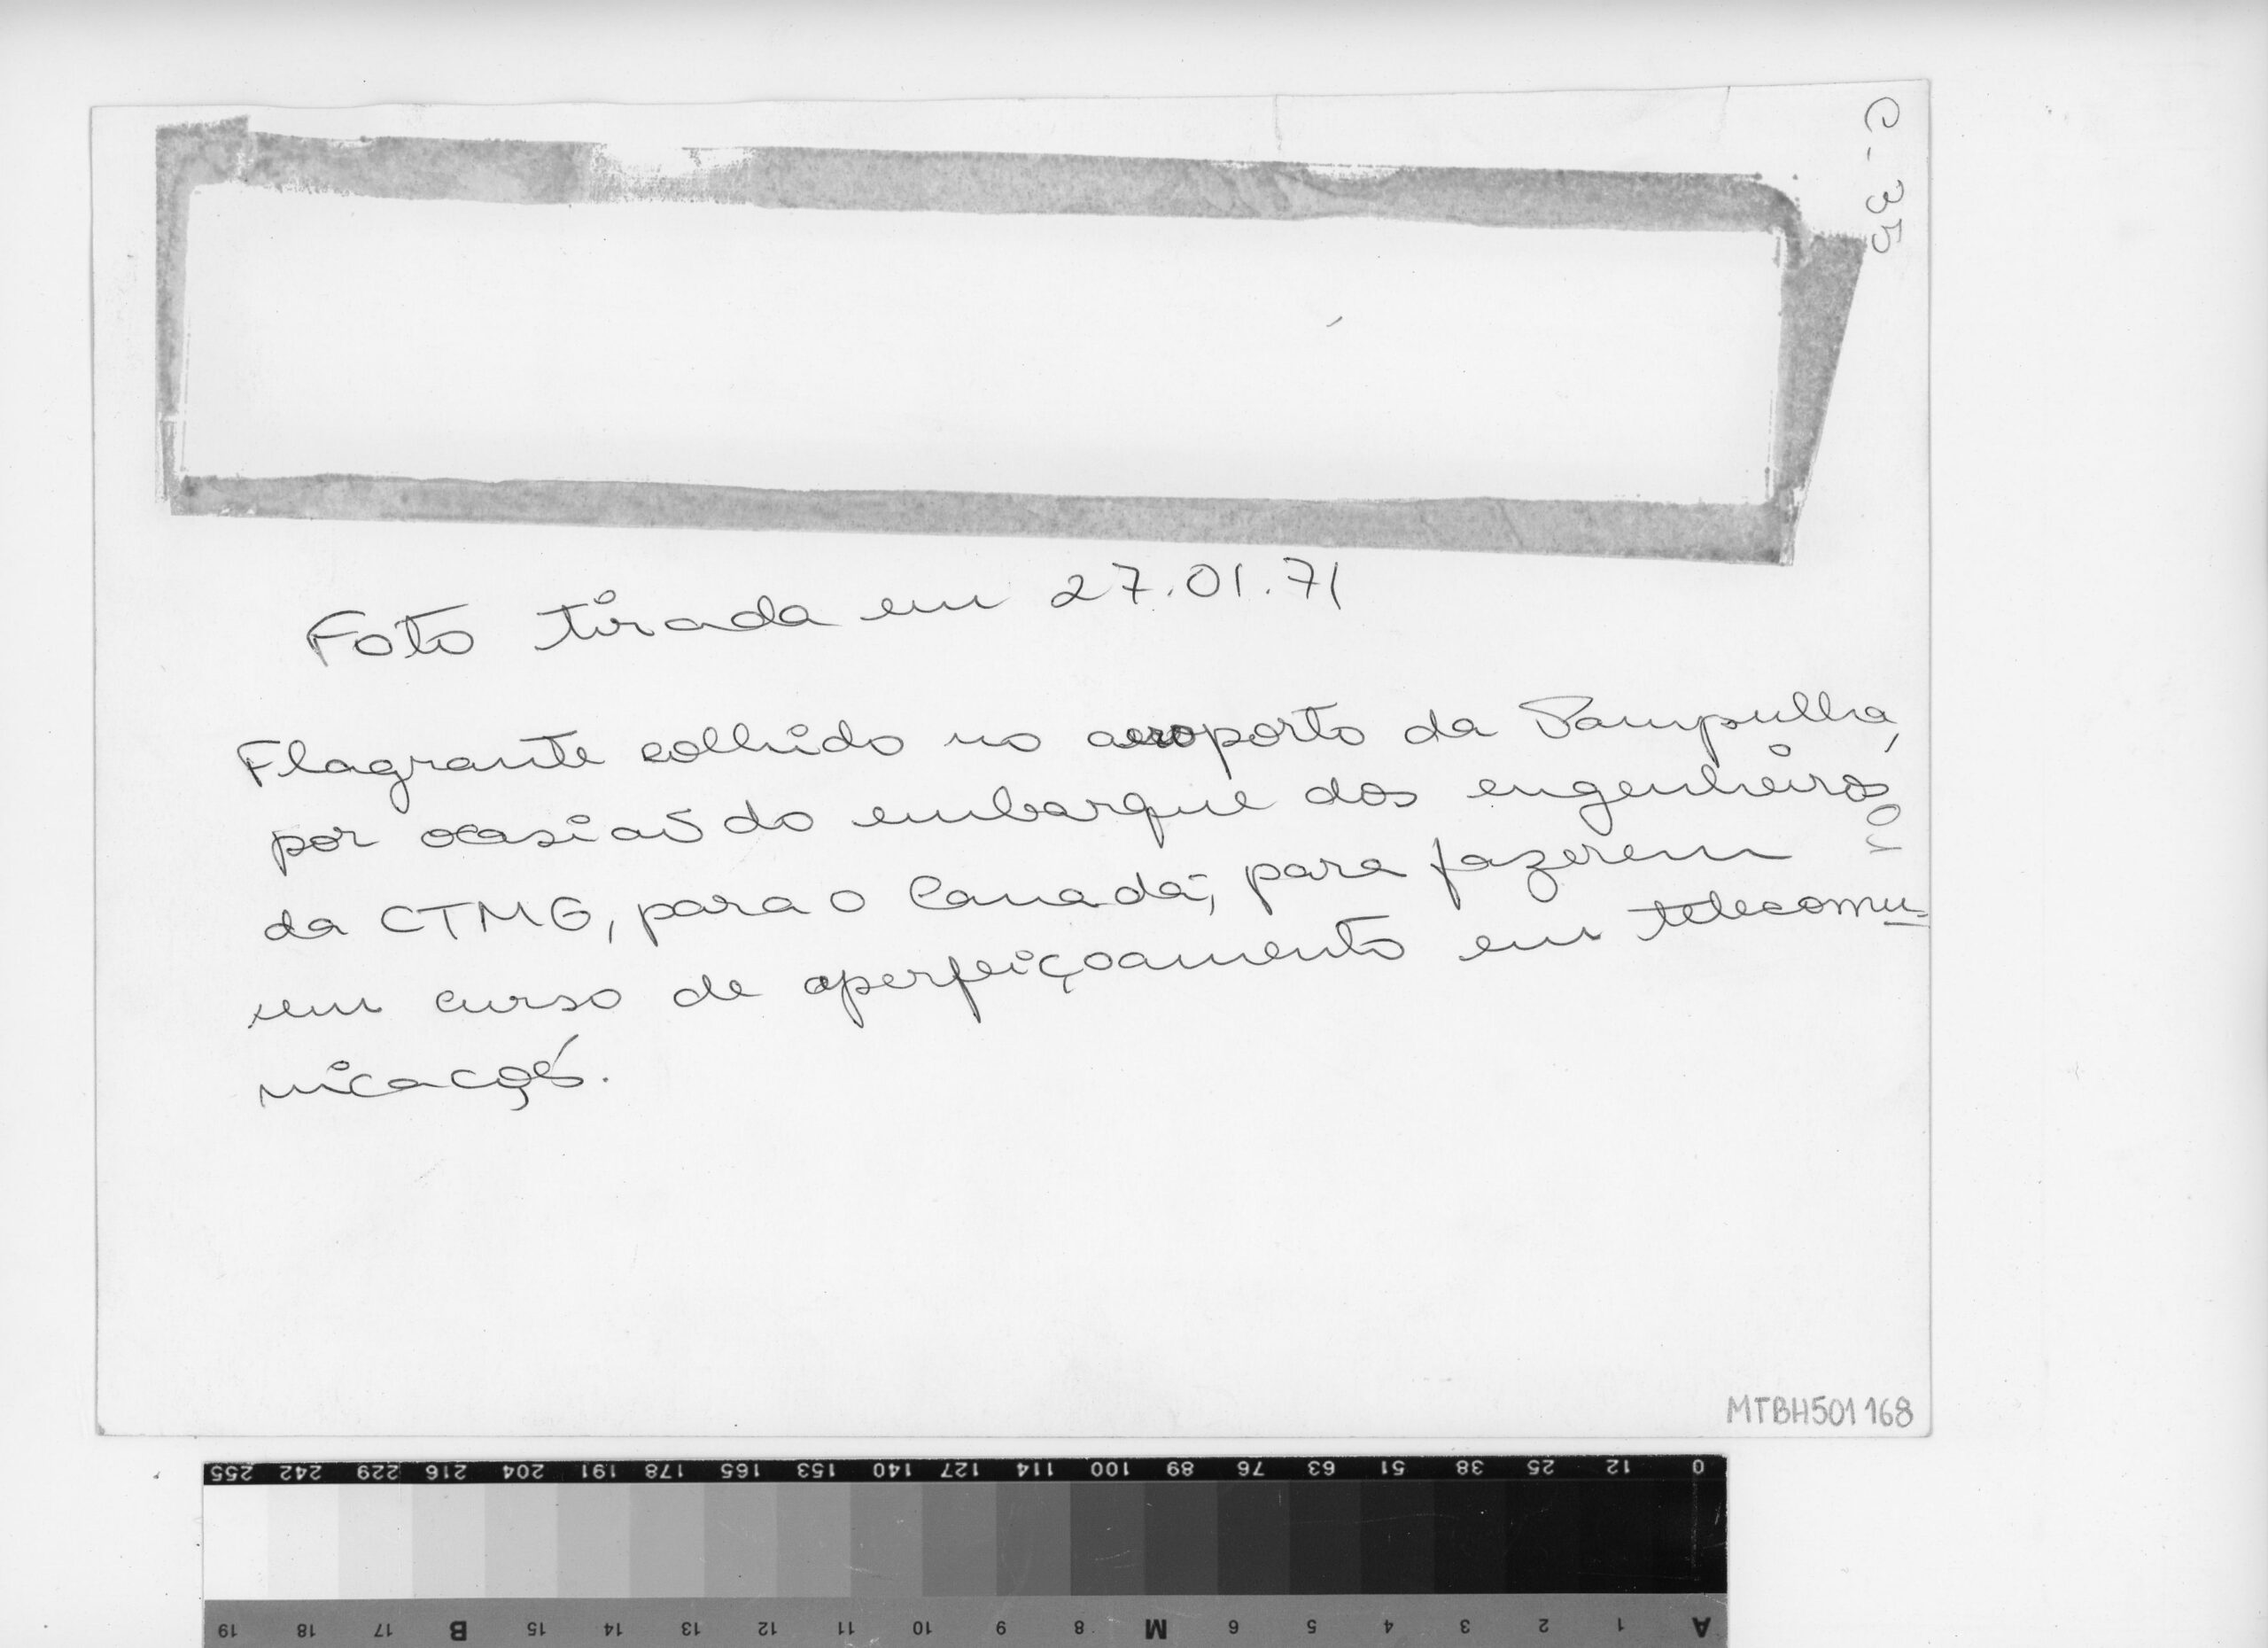 C-35
Foto tirada em 27.01.71
Flagrante colhido no aeroporto da Pampulha,
por ocasiaõ do embarque dos engenheiros
da CTMG, para o Canadá, para fazerem
um curso de aperfeiçoamento em telecomu-
nicaçoẽs.
MTBH501168
255 242 229 216 204 191 178 165 153 140 127 114 100 89 76 63 51 38 25 12 0
19 18 17 B 15 14 13 12 11 10 9 8 M 6 5 4 3 2 1 A